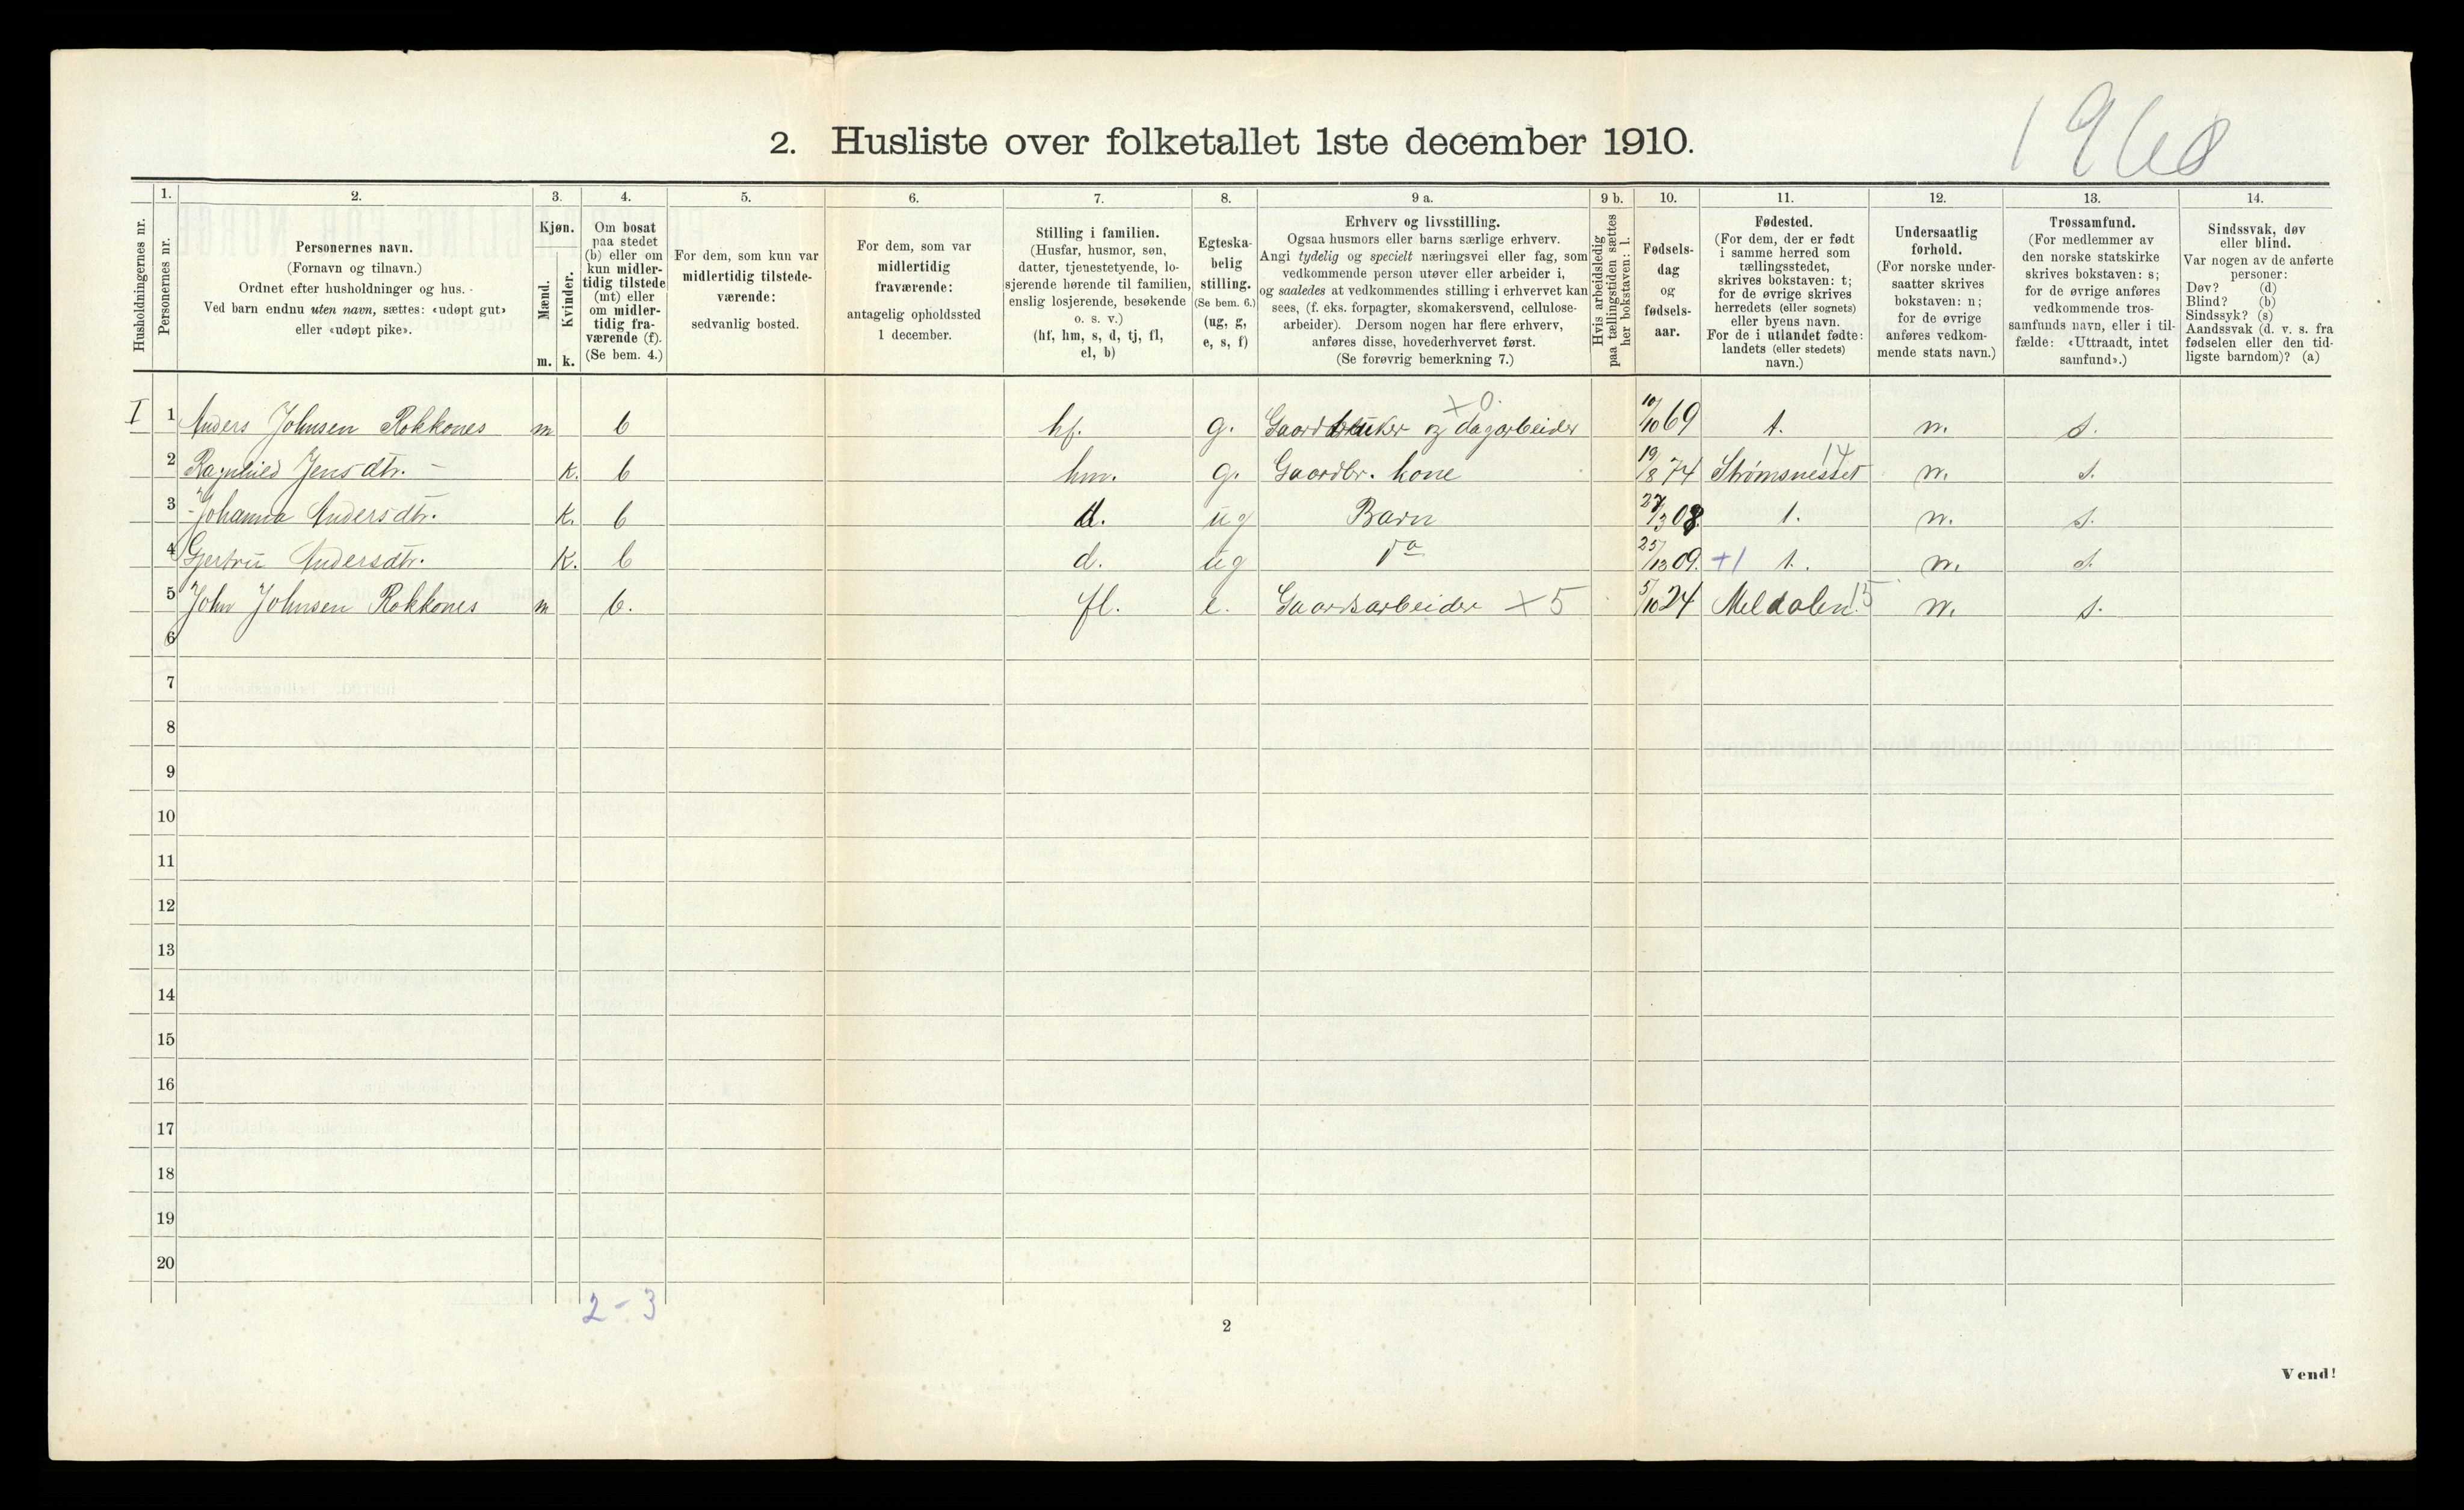 1960
2. Husliste over folketallet 1ste december 1910.
Husholdningernes nr.
1.
Personernes nr.
2.
Personernes navn.
(Fornavn og tilnavn.)
Ordnet efter husholdninger og hus.
Ved barn endnu uten navn, sættes: «udøpt gut»
eller «udøpt pike».
3.
Kjøn.
Mænd.
Kvinder.
m. k.
4.
Om bosat
paa stedet
(b) eller om
kun midler-
tidig tilstede
(mt) eller
om midler-
tidig fra-
værende (f).
(Se bem. 4.)
5.
For dem, som kun var
midlertidig tilstede-
værende:
sedvanlig bosted.
6.
For dem, som var
midlertidig
fraværende:
antagelig opholdssted
1 december.
7.
Stilling i familien.
(Husfar, husmor, søn,
datter, tjenestetyende, lo-
sjerende hørende til familien,
enslig losjerende, besøkende
o. s. v.)
(hf, hm, s, d, tj, fl,
el, b)
8.
Egteska-
belig
stilling.
(Se bem. 6.)
(ug, g,
e, s, f)
9 a.
Erhverv og livsstilling.
Ogsaa husmors eller barns særlige erhverv.
Angi tydelig og specielt næringsvei eller fag, som
vedkommende person utøver eller arbeider i,
og saaledes at vedkommendes stilling i erhvervet kan
sees, (f. eks. forpagter, skomakersvend, cellulose-
arbeider). Dersom nogen har flere erhverv,
anføres disse, hovederhvervet først.
(Se forøvrig bemerkning 7.)
9 b.
Hvis arbeidsledig
paa tællingstiden sættes
her bokstaven: l.
10.
Fødsels-
dag
og
fødsels-
aar.
11.
Fødested.
(For dem, der er født
i samme herred som
tællingsstedet,
skrives bokstaven: t;
for de øvrige skrives
herredets (eller sognets)
eller byens navn.
For de i utlandet fødte:
landets (eller stedets)
navn.)
12.
Undersaatlig
forhold.
(For norske under-
saatter skrives
bokstaven: n;
for de øvrige
anføres vedkom-
mende stats navn.)
13.
Trossamfund.
(For medlemmer av
den norske statskirke
skrives bokstaven: s;
for de øvrige anføres
vedkommende tros-
samfunds navn, eller i til-
fælde: «Uttraadt, intet
samfund».)
14.
Sindssvak, døv
eller blind.
Var nogen av de anførte
personer:
Døv? (d)
Blind? (b)
Sindssyk? (s)
Aandssvak (d. v. s. fra
fødselen eller den tid-
ligste barndom)? (a)
I 1 Anders Johnsen Rokkones m b hf. g. Gaardbruker og dagarbeider x 0. 10/10 69 t. n. s.
2 Ragnhild Jensdtr. - k. b hm. g. Gaardbr. kone 19/8 74 Strømsnesset 14 n. s.
3 - Johanna Andersdtr. k. b d. ug Barn 27/3 08 t. n. s.
4 Gjertru Andersdtr. k. b d. ug Do 25/12 09. +1 t. n. s.
5 John Johnsen Rokkones m b. fl. e. Gaardsarbeider x 5 5/10 24 Meldalen 15 n. s.
6
7
8
9
10
11
12
13
14
15
16
17
18
19
20
2 - 3
2
Vend!